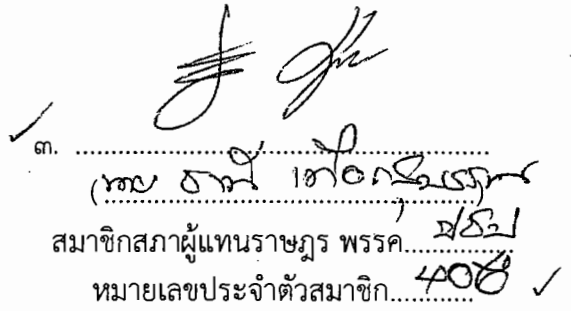 ๓. ........................................
(นาย ธานี เทือกสุบรรณ)
สมาชิกสภาผู้แทนราษฎร พรรค....ปชป
หมายเลขประจำตัวสมาชิก....